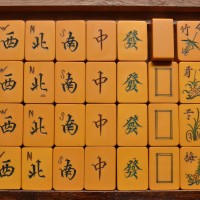 W 西 N 北 S 南 中 發 竹
W 西 N 北 S 南 中 發
W 西 N 北 S 南 中 發
W 西 N 北 S 南 中 發 梅